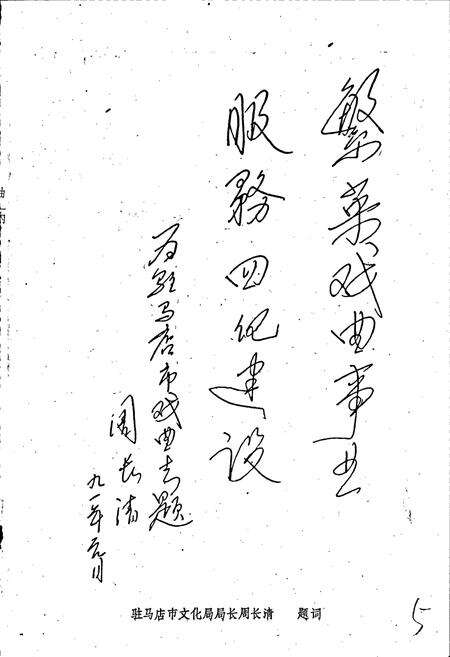 繁荣戏曲事业
服務四化建设
为驻马店市戏曲志题
周长清
九一年元月
驻马店市文化局局长周长清 题词
5